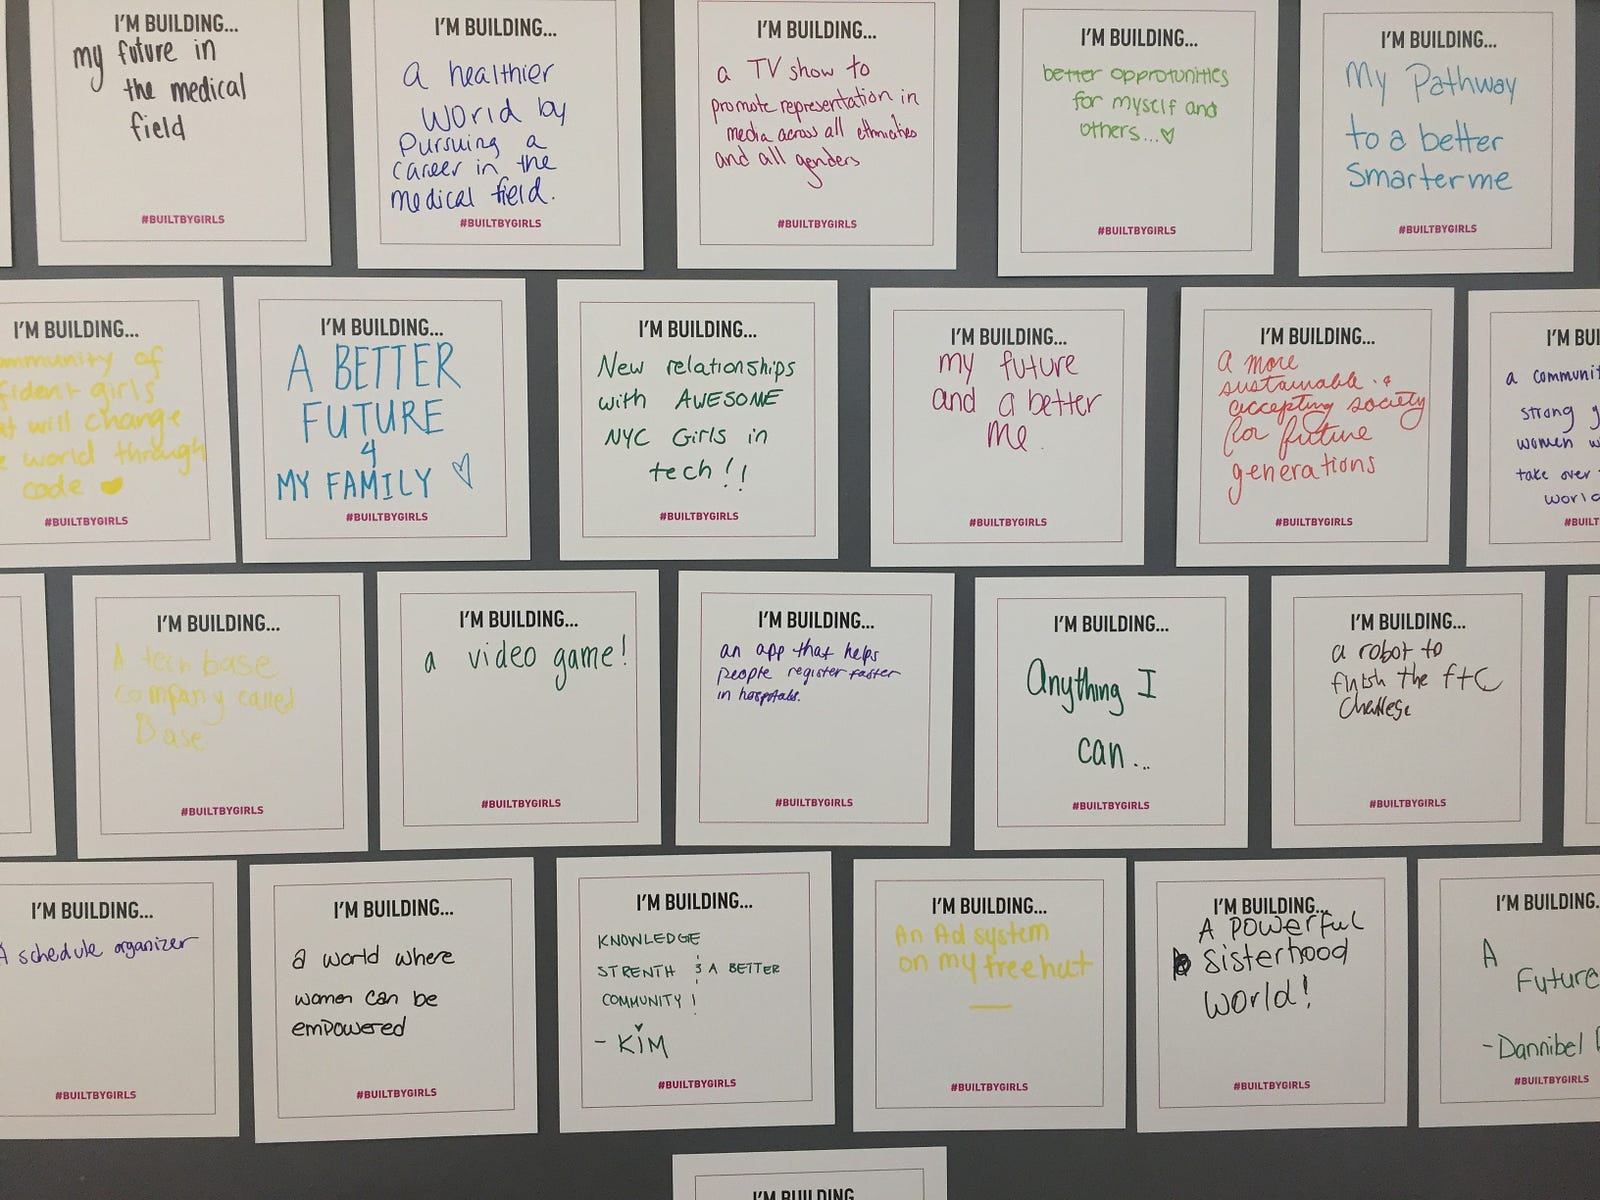 I'M BUILDING...
my future in
the medical
field
#BUILTBYGIRLS
I'M BUILDING...
a healthier
World by
Pursuing a
career in the
medical field.
#BUILTBYGIRLS
I'M BUILDING...
a TV show to
promote representation in
media across all ethnicities
and all genders
#BUILTBYGIRLS
I'M BUILDING...
better opprotunities
for myself and
others...♡
#BUILTBYGIRLS
I'M BUILDING...
My Pathway
to a better
Smarter me
#BUILTBYGIRLS
I'M BUILDING...
ommunity of
fident girls
t will change
world through
code
#BUILTBYGIRLS
I'M BUILDING...
A BETTER
FUTURE
4
MY FAMILY ♡
#BUILTBYGIRLS
I'M BUILDING...
New relationships
with AWESOME
NYC Girls in
tech!!
#BUILTBYGIRLS
I'M BUILDING...
my future
and a better
Me.
#BUILTBYGIRLS
I'M BUILDING...
a more
sustainable &
accepting society
for future
generations
#BUILTBYGIRLS
I'M BUI
a communit
strong g
women w
take over t
worl
#BUILT
I'M BUILDING...
A tech base
company called
Base
#BUILTBYGIRLS
I'M BUILDING...
a video game!
#BUILTBYGIRLS
I'M BUILDING...
an app that helps
people register faster
in hospitals.
#BUILTBYGIRLS
I'M BUILDING...
Anything I
can...
#BUILTBYGIRLS
I'M BUILDING...
a robot to
finish the ftC
Challege
#BUILTBYGIRLS
I'M BUILDING...
A schedule organizer
#BUILTBYGIRLS
I'M BUILDING...
a world where
women can be
empowered
#BUILTBYGIRLS
I'M BUILDING...
KNOWLEDGE
STRENTH & A BETTER
COMMUNITY!
- KIM
#BUILTBYGIRLS
I'M BUILDING...
An Ad system
on my freehut
#BUILTBYGIRLS
I'M BUILDING...
A POWERFUL
Sisterhood
World!
#BUILTBYGIRLS
I'M BUILDING.
A
Future
-Dannibel
#BUILTBYGIRLS
I'M BUILDING